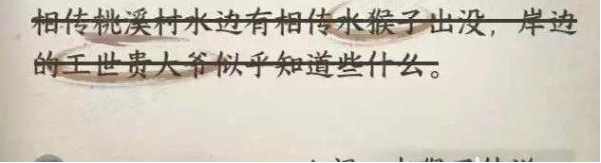 相传桃溪村水边有相传水猴子出没，岸边
的王世贵大爷似乎知道些什么。